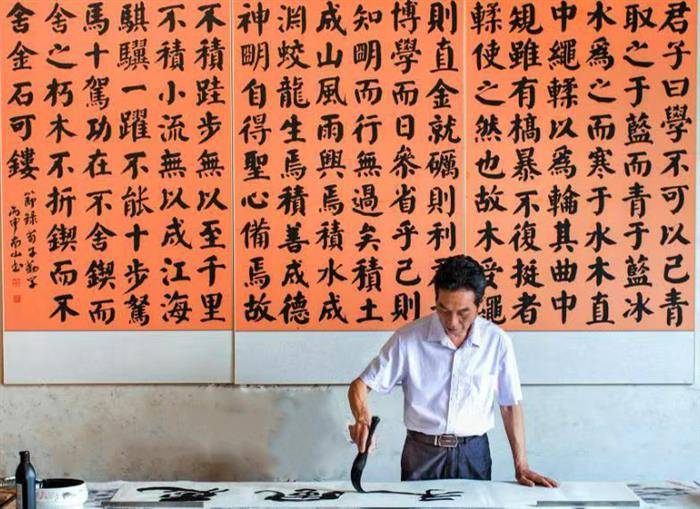 君子曰學不可以已青
取之于藍而青于藍冰
水為之而寒于水木直
中繩輮以為輪其曲中
規雖有槁暴不復挺者
輮使之然也故木受繩
則直金就礪則利
博學而日參省乎己則
知明而行無過矣積土
成山風雨興焉積水成
淵蛟龍生焉積善成德
神明自得聖心備焉故
不積跬步無以至千里
不積小流無以成江海
騏驥一躍不能十步駑
馬十駕功在不舍鍥而
舍之朽木不折鍥而不
舍金石可鏤
節錄荀子勸學
丙申南山書